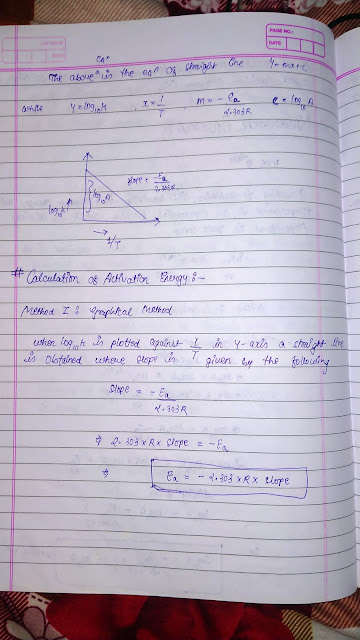 PAGE NO.:
DATE
eqn
The above is the eqn of straight line y=mx+c
where y = log₁₀k , x = 1/T , m = -Ea/2.303R c = log₁₀A
slope = -Ea/2.303R
log₁₀A
log₁₀k ↑
→
1/T
# Calculation of Activation Energy:-
Method I : Graphical Method
when log₁₀k is plotted against 1/T in y-axis a straight line
is obtained where slope is given by the following
slope = -Ea/2.303R
⇒ 2.303 × R × slope = -Ea
⇒ Ea = - 2.303 × R × slope